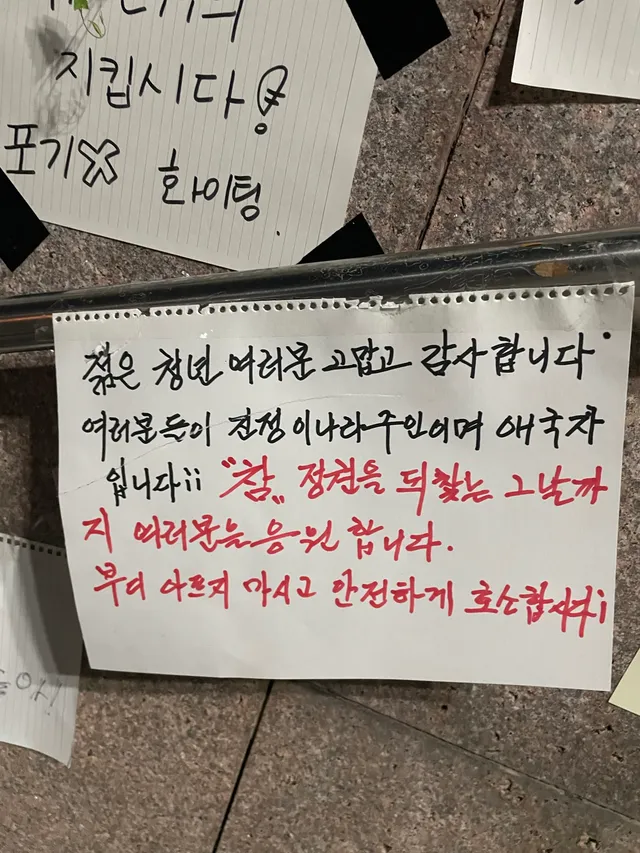 지킵시다!
포기X 화이팅
젊은 청년 여러분 고맙고 감사합니다.
여러분들이 진정 이나라 주인이며 애국자
입니다!! "참" 정권을 되찾는 그날까
지 여러분을 응원합니다.
부디 아프지 마시고 안전하게 호소합시다!